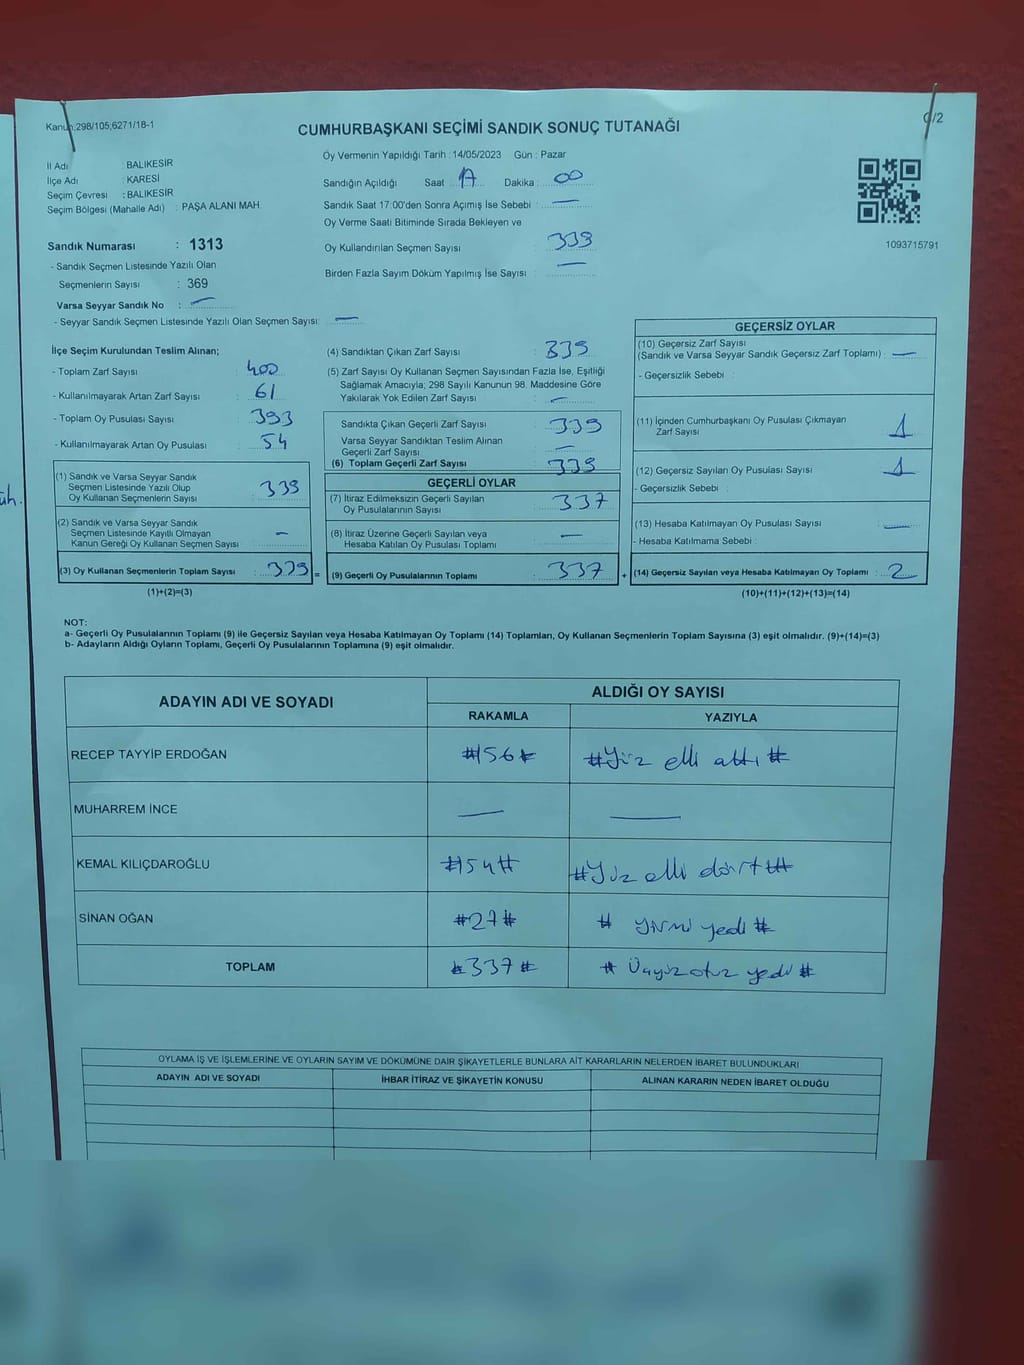 Kanun;298/105;6271/18-1
C/2
CUMHURBAŞKANI SEÇİMİ SANDIK SONUÇ TUTANAĞI
İl Adı : BALIKESİR
İlçe Adı : KARESİ
Seçim Çevresi : BALIKESİR
Seçim Bölgesi (Mahalle Adı) : PAŞA ALANI MAH.
Sandık Numarası : 1313
- Sandık Seçmen Listesinde Yazılı Olan
Seçmenlerin Sayısı : 369
Varsa Seyyar Sandık No : —
- Seyyar Sandık Seçmen Listesinde Yazılı Olan Seçmen Sayısı: —
Oy Vermenin Yapıldığı Tarih : 14/05/2023 Gün : Pazar
Sandığın Açıldığı Saat : 17 Dakika : 00
Sandık Saat 17:00'den Sonra Açımış İse Sebebi : —
Oy Verme Saati Bitiminde Sırada Bekleyen ve
Oy Kullandırılan Seçmen Sayısı : 339
Birden Fazla Sayım Döküm Yapılmış İse Sayısı : —
1093715791
İlçe Seçim Kurulundan Teslim Alınan;
- Toplam Zarf Sayısı : 400
- Kullanılmayarak Artan Zarf Sayısı : 61
- Toplam Oy Pusulası Sayısı : 393
- Kullanılmayarak Artan Oy Pusulası : 54
(1) Sandık ve Varsa Seyyar Sandık
Seçmen Listesinde Yazılı Olup
Oy Kullanan Seçmenlerin Sayısı : 339
(2) Sandık ve Varsa Seyyar Sandık
Seçmen Listesinde Kayıtlı Olmayan
Kanun Gereği Oy Kullanan Seçmen Sayısı : —
(3) Oy Kullanan Seçmenlerin Toplam Sayısı : 339 =
(1)+(2)=(3)
(4) Sandıktan Çıkan Zarf Sayısı : 339
(5) Zarf Sayısı Oy Kullanan Seçmen Sayısından Fazla İse, Eşitliği
Sağlamak Amacıyla; 298 Sayılı Kanunun 98. Maddesine Göre
Yakılarak Yok Edilen Zarf Sayısı : —
Sandıkta Çıkan Geçerli Zarf Sayısı : 339
Varsa Seyyar Sandıktan Teslim Alınan
Geçerli Zarf Sayısı : —
(6) Toplam Geçerli Zarf Sayısı : 339
GEÇERLİ OYLAR
(7) İtiraz Edilmeksizin Geçerli Sayılan
Oy Pusulalarının Sayısı : 337
(8) İtiraz Üzerine Geçerli Sayılan veya
Hesaba Katılan Oy Pusulası Toplamı : —
(9) Geçerli Oy Pusulalarının Toplamı : 337 +
GEÇERSİZ OYLAR
(10) Geçersiz Zarf Sayısı
(Sandık ve Varsa Seyyar Sandık Geçersiz Zarf Toplamı) : —
- Geçersizlik Sebebi :
(11) İçinden Cumhurbaşkanı Oy Pusulası Çıkmayan
Zarf Sayısı : 1
(12) Geçersiz Sayılan Oy Pusulası Sayısı : 1
- Geçersizlik Sebebi :
(13) Hesaba Katılmayan Oy Pusulası Sayısı : —
- Hesaba Katılmama Sebebi :
(14) Geçersiz Sayılan veya Hesaba Katılmayan Oy Toplamı : 2
(10)+(11)+(12)+(13)=(14)
NOT:
a- Geçerli Oy Pusulalarının Toplamı (9) ile Geçersiz Sayılan veya Hesaba Katılmayan Oy Toplamı (14) Toplamları, Oy Kullanan Seçmenlerin Toplam Sayısına (3) eşit olmalıdır. (9)+(14)=(3)
b- Adayların Aldığı Oyların Toplamı, Geçerli Oy Pusulalarının Toplamına (9) eşit olmalıdır.
ADAYIN ADI VE SOYADI ALDIĞI OY SAYISI
RAKAMLA YAZIYLA
RECEP TAYYİP ERDOĞAN #156# #Yüz elli altı#
MUHARREM İNCE — —
KEMAL KILIÇDAROĞLU #154# #Yüz elli dört#
SİNAN OĞAN #27# # yirmi yedi #
TOPLAM #337# # Üçyüz otuz yedi #
OYLAMA İŞ VE İŞLEMLERİNE VE OYLARIN SAYIM VE DÖKÜMÜNE DAİR ŞİKAYETLERLE BUNLARA AİT KARARLARIN NELERDEN İBARET BULUNDUKLARI
ADAYIN ADI VE SOYADI İHBAR İTİRAZ VE ŞİKAYETİN KONUSU ALINAN KARARIN NEDEN İBARET OLDUĞU